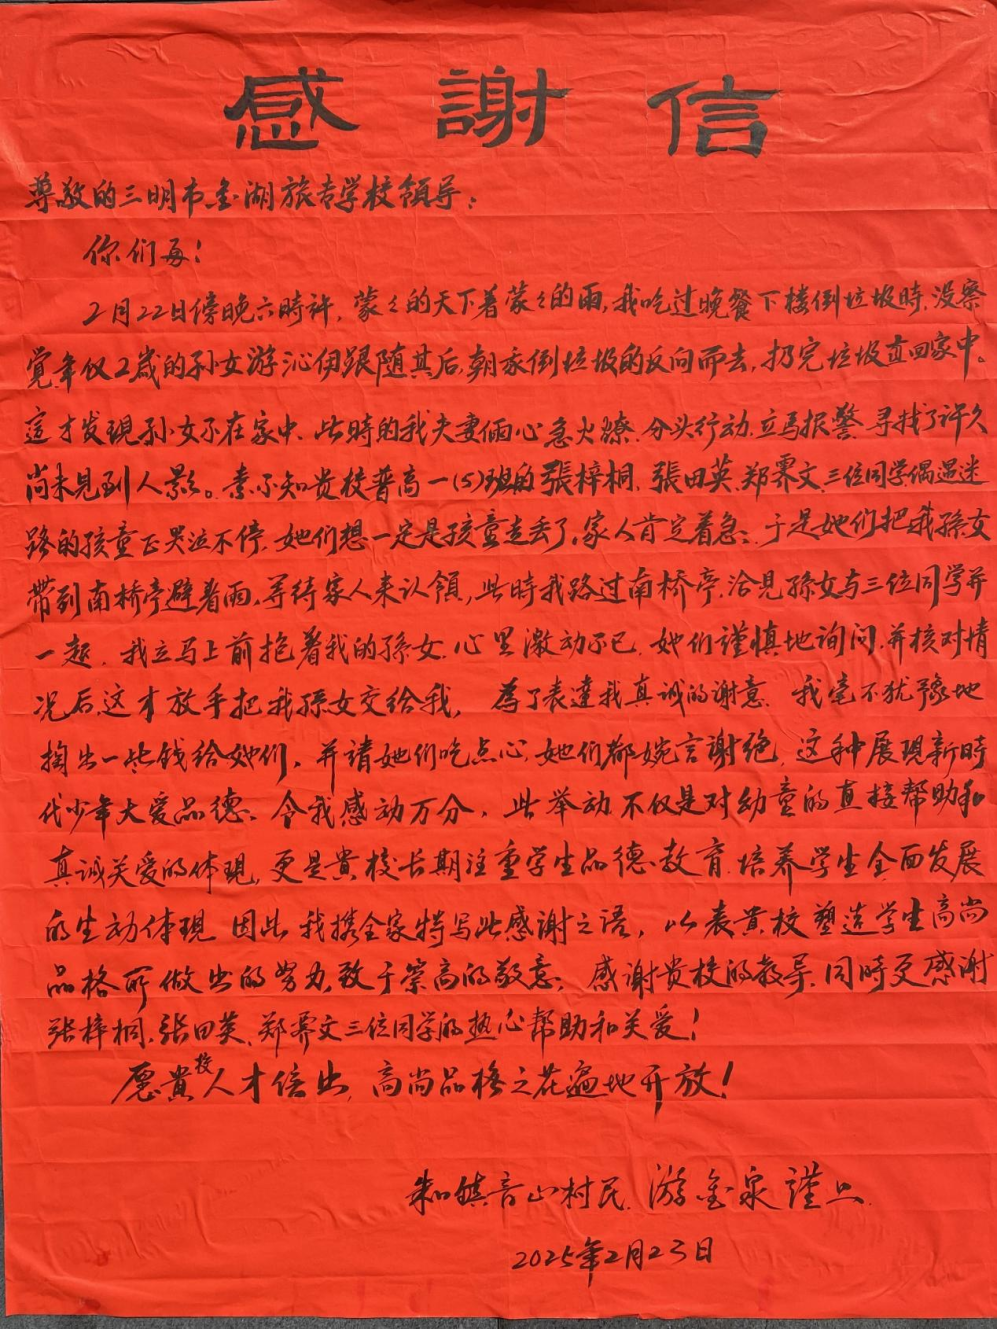 感謝信
尊敬的三明市金湖旅专学校領导：
你们好！
2月22日傍晚六時許，蒙々的天下着蒙々的雨，我吃过晚餐下楼倒垃圾時，没察
觉年仅2歲的孙女游沁伊跟随其后，朝永倒垃圾的反向而去，扔完垃圾直回家中。
這才发現孙女不在家中，此時的我夫妻俩心急火燎，分头行动，立馬报警，寻找了许久
尚未見到人影。素不知贵校普高一(5)班的張梓桐，張田英、郑霁文，三位同学偶遇迷
路的孩童正哭泣不停，她们想一定是孩童走丢了，家人肯定着急；于是她们把我孫女
带到南桥亭避着雨，等待家人来认領，此時我路过南桥亭，洽見孫女与三位同学并
一起，我立马上前抱着我的孫女，心里激动不已，她们謹慎地询问，并核对情
况后，这才放手把我孫女交给我，為了表達我真诚的谢意，我毫不犹豫地
掏出一些钱给她们，并請她们吃点心，她们都婉言謝绝，这种展現新時
代少年大爱品德，令我感动万分，此举动不仅是对幼童的直接帮助和
真诚关爱的体現，更是貴校长期注重学生品德教育，培养学生全面发展
的生动体現，因此，我携全家特写此感谢之语，以表貴校塑造学生高尚
品格所做出的努力，致于崇高的敬意；感谢贵校的教导，同時更感谢
张梓桐，张田英、郑霁文三位同学的热心帮助和关爱！
愿貴校人才倍出，高尚品格之花遍地开放！
朱口镇音山村民，游金泉謹上
2025年2月23日